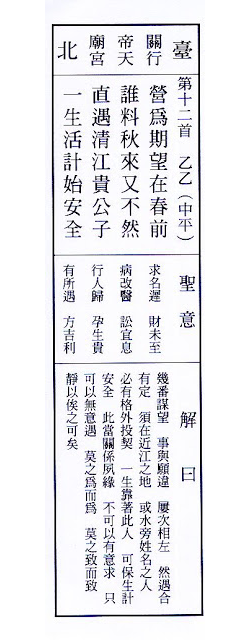 臺
關行
帝天
廟宮
北
第十二首 乙乙(中平)
營爲期望在春前
誰料秋來又不然
直遇清江貴公子
一生活計始安全
聖意
求名遲 財未至
病改醫 訟宜息
行人歸 孕生貴
有所遇 方吉利
解曰
幾番謀望 事與願違 屢次相左 然遇合
有定 須在近江之地 或水旁姓名之人
必有格外投契 一生靠著此人 可保生計
安全 此當關係夙緣 不可以有意求 只
可以無意遇 莫之爲而爲 莫之致而致
靜以俟之可矣